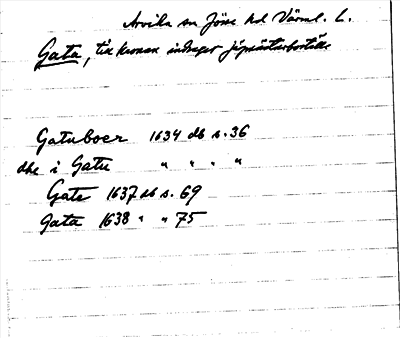 Arvika sn Jösse hd Värml. L.
Gata, till kronan indraget jägmästarboställe
Gatuboer 1634 db s. 36
dhe i Gatu " " " "
Gate 1637 db s. 69
Gata 1638 " " 75